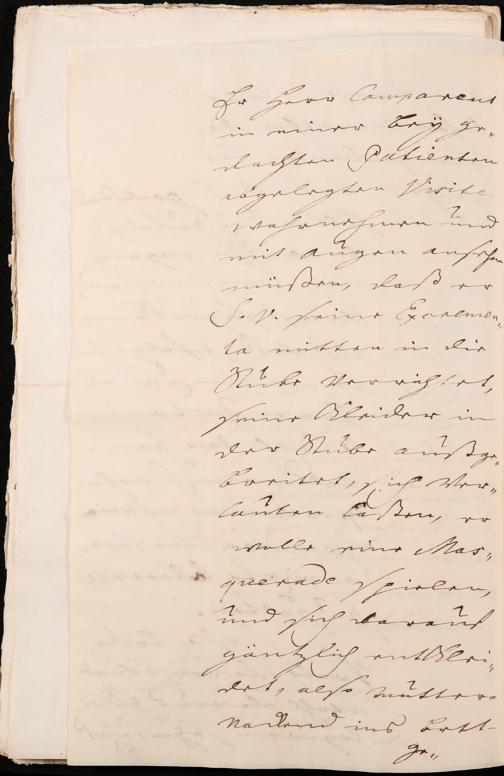 Er Herr Comparent
in einer beÿ ge„
dachten Patienten
abgelegten Visite
wahrnehmen und
mit augen ansehen
müßen, daß er
S. V. seine Excremen„
ta mitten in die
Stube verrichtet,
seine Kleider in
der Stube außge„
breitet, sich ver„
lauten laßen, er
wolle eine Mas„
querade spielen,
und sich darauf
gäntzlich entklei„
det, also mutter„
nackend ins bett
ge„